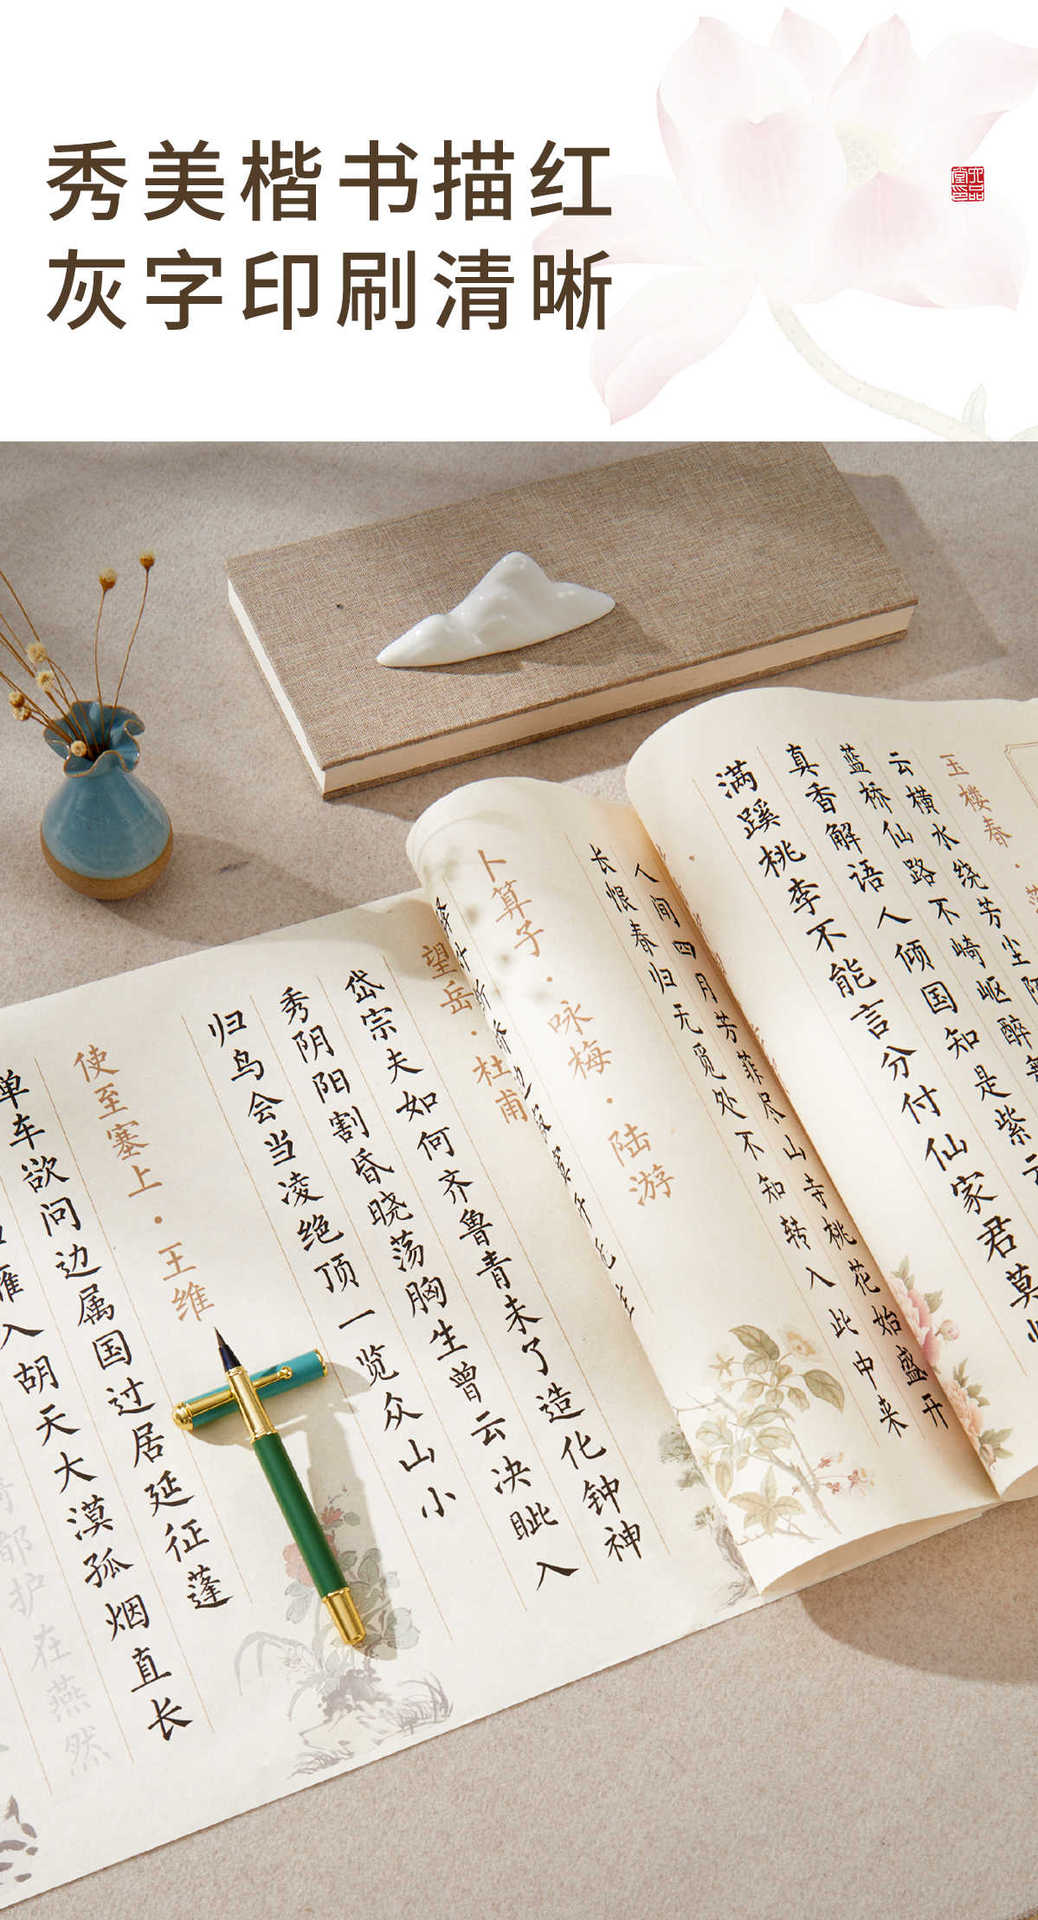 秀美楷书描红
灰字印刷清晰
六品堂印
玉楼春·
云横水绕芳尘陌
蓝桥仙路不崎岖醉舞
真香解语人倾国知是紫云
满蹊桃李不能言分付仙家君莫
人间四月芳菲尽山寺桃花始盛开
长恨春归无觅处不知转入此中来
卜算子·咏梅·陆游
望岳·杜甫
岱宗夫如何齐鲁青未了造化钟神
秀阴阳割昏晓荡胸生曾云决眦入
归鸟会当凌绝顶一览众山小
使至塞上·王维
单车欲问边属国过居延征蓬
雁入胡天大漠孤烟直长
都护在燕然